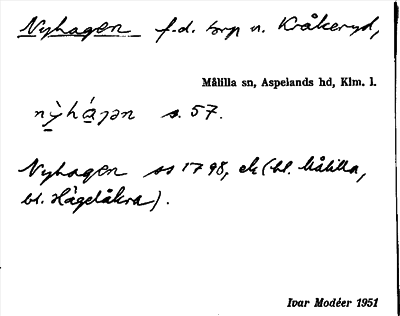 Nyhagen f.d. torp u. Kråkeryd,
Målilla sn, Aspelands hd, Klm. l.
nỳhágən s. 57.
Nyhagen ss 1798, ek (bl. Målilla,
bl. Hagelåkra).
Ivar Modéer 1951